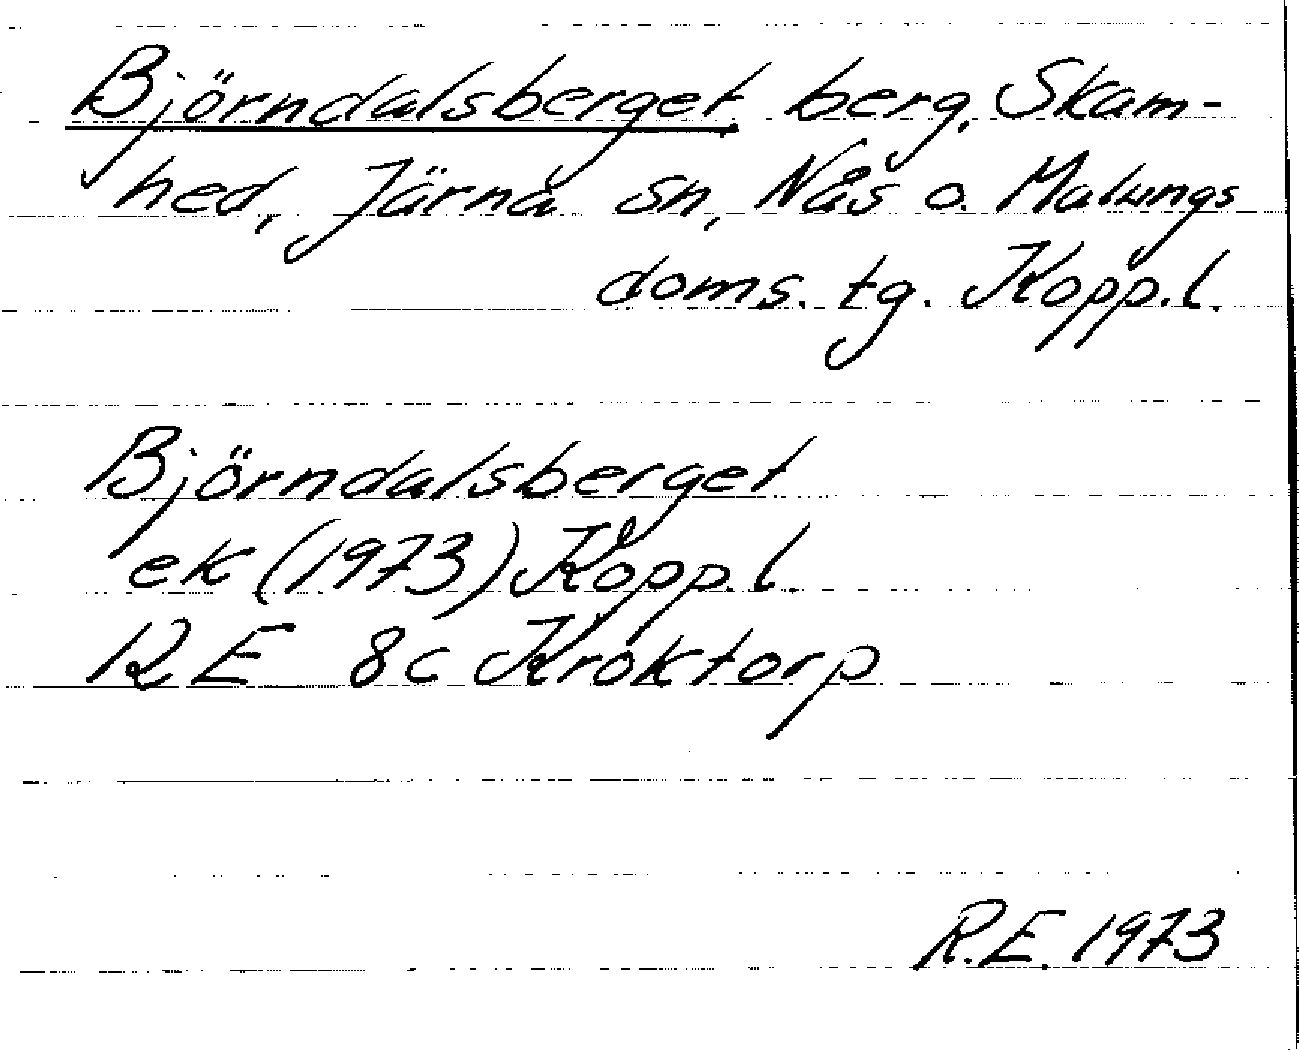 Björndalsberget, berg, Skam-
hed, Järna sn, Nås o. Malungs
doms. tg. Kopp.l.
Björndalsberget
ek (1973) Kopp.l.
12 E 8c Kroktorp
R.E. 1973